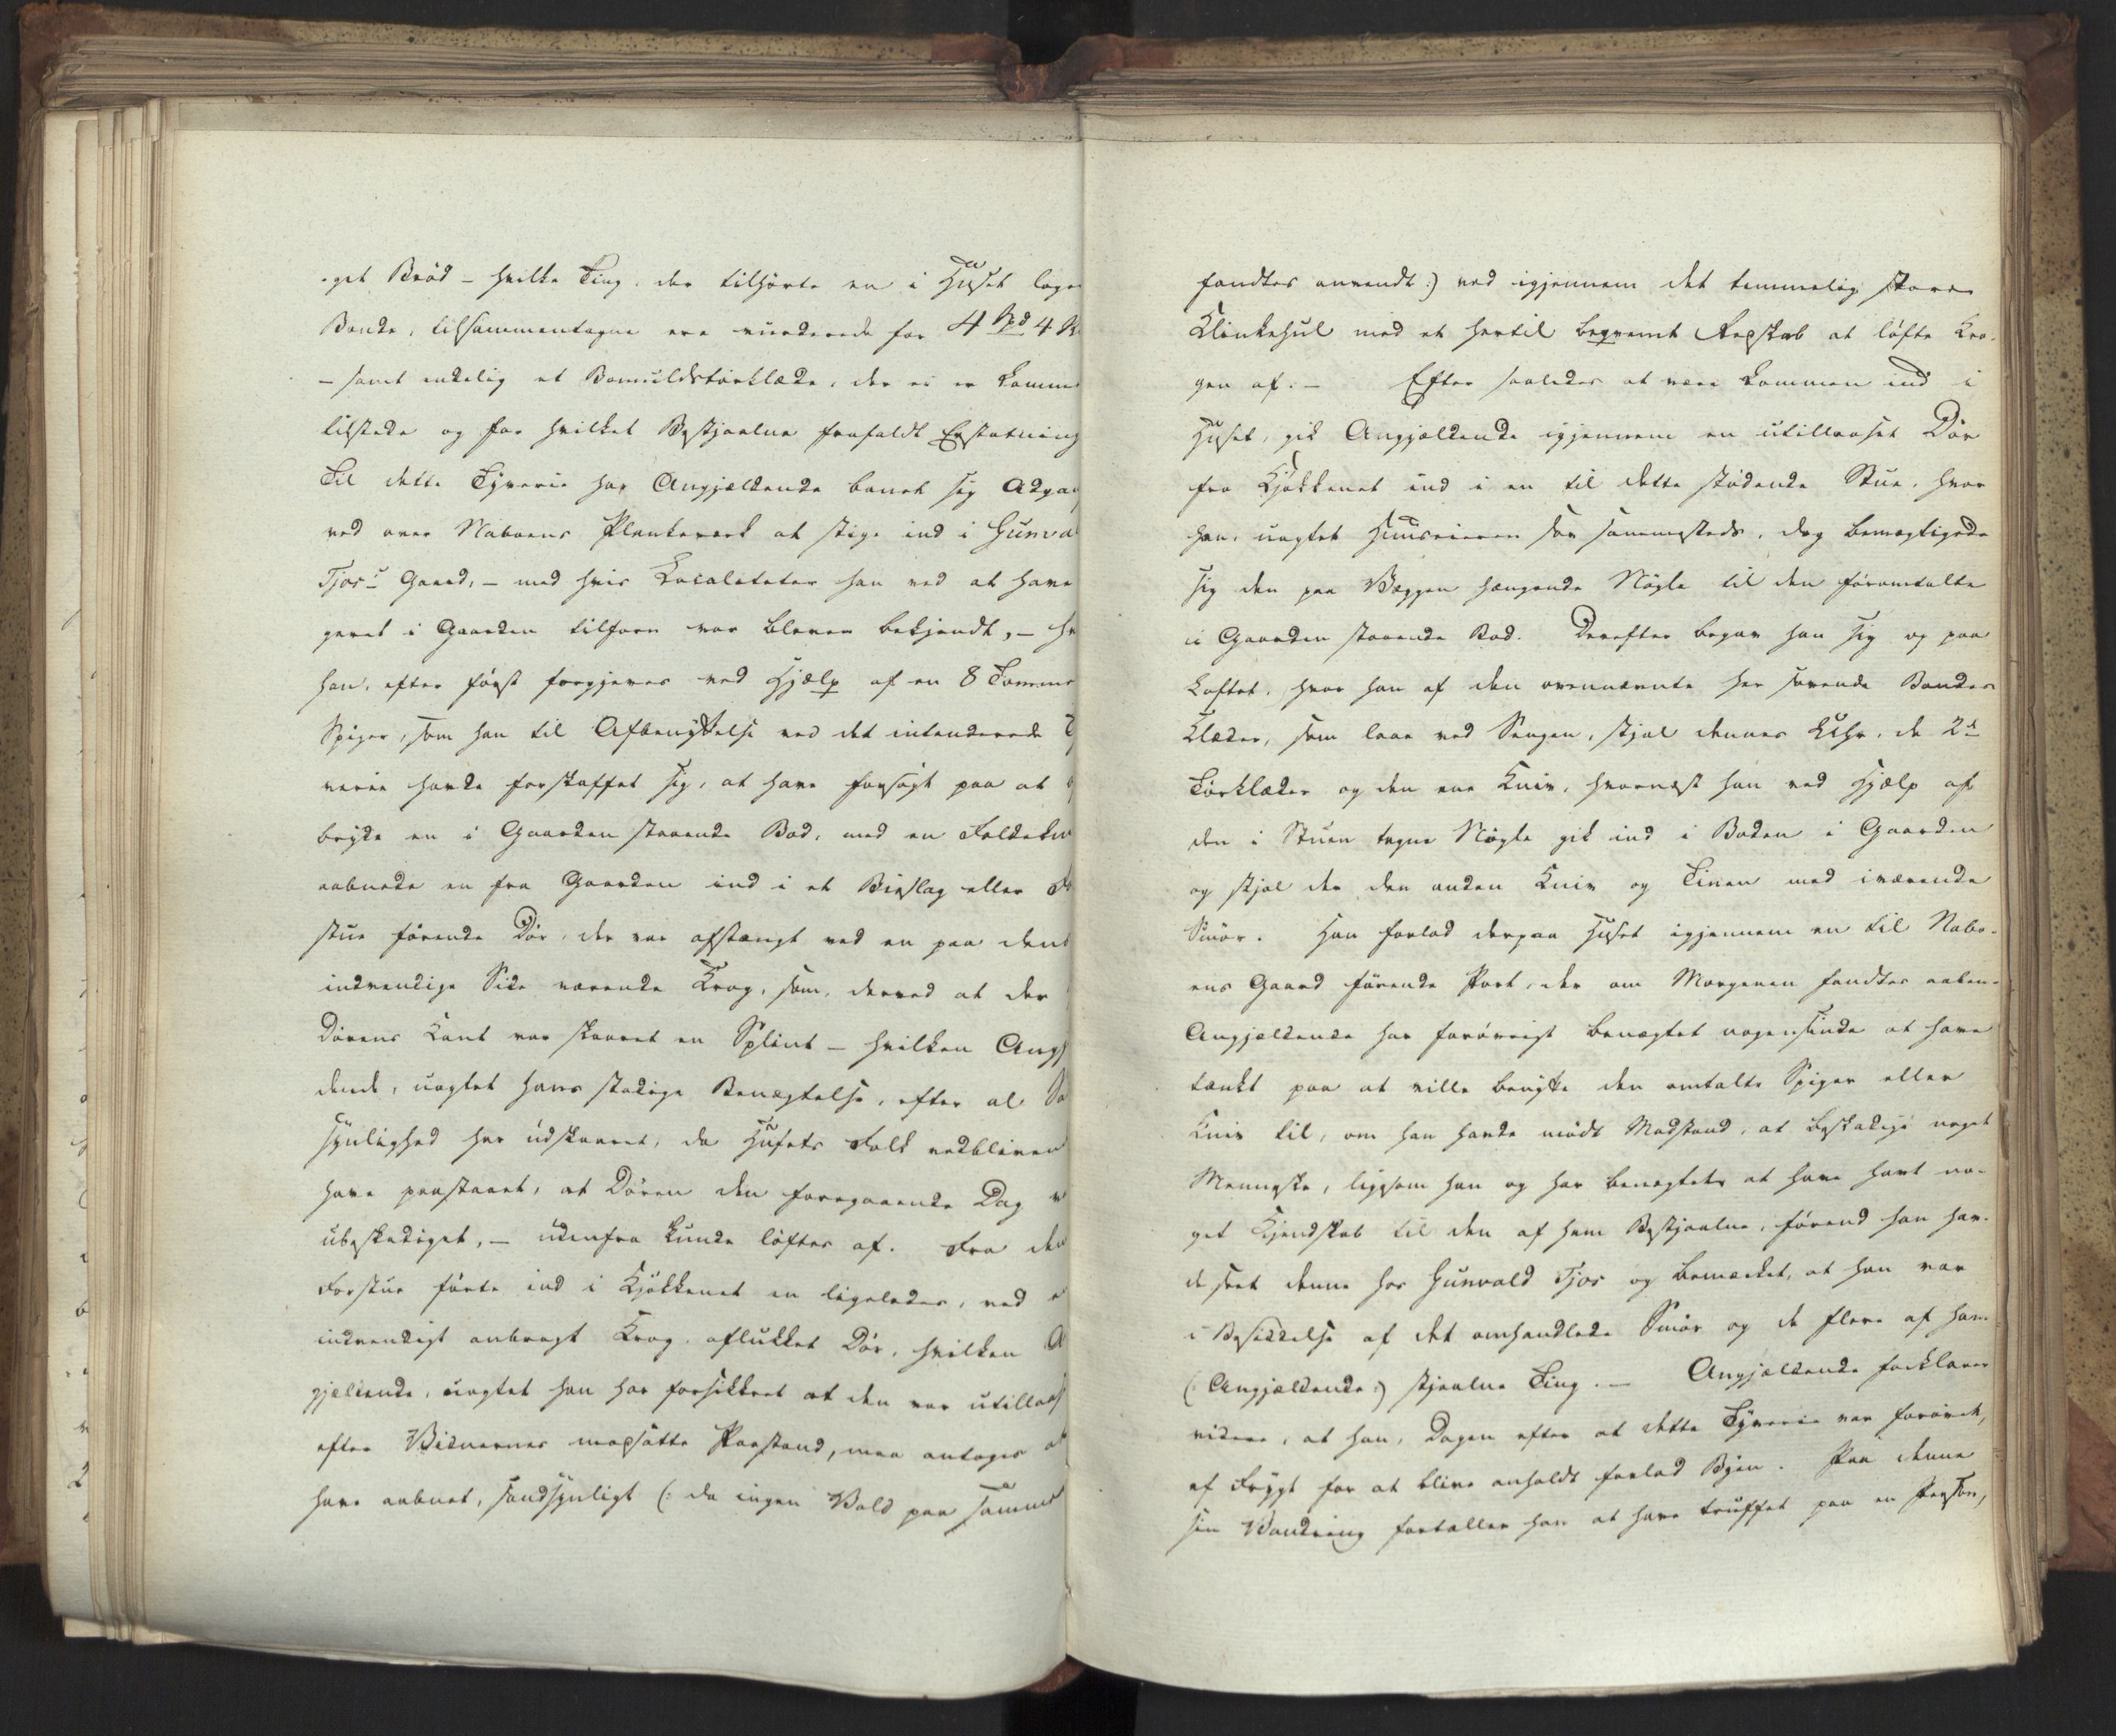 oget Brød – hvilke Ting, der tilhørte en i Huset loge
Bonde, tilsammentagne ere vurderede for 4 Spd 4
– samt endelig et Bomuldstørklæde, der ei er komme
tilstede og for hvilket Bestjaalne frafaldt Erstatning
Til dette Tyverie har Angjældende banet sig Adgan
ved over Naboens Plankeværk at stige ind i Gunval
Tjos's Gaard, – med hvis Localiteter han ved at have
været i Gaarden tilforn var bleven bekjendt, – hv
han, efter først forgjæves ved Hjælp af en 8 Tomme
Spiger, som han til Afbenyttelse ved det intenderede T
verie havde forskaffet sig, at have forsøgt paa at o
bryde en i Gaarden staaende Bod, med en Foldekn
aabnede en fra Gaarden ind i et Bislag eller Fo
stue førende Dør, der var afstængt ved en paa dens
indvendige Side værende Krog, som, derved at der
Dørens Kant var skaaret en Splint – hvilken Angj
dende, uagtet hans stadige Benægtelse, efter al Sa
synlighed har udskaaret, da Husets Folk vedbliven
have paastaaet, at Døren den foregaaende Dag v
ubeskadiget, – udenfra kunde løftes af. Fra den
Forstue førte ind i Kjøkkenet en ligeledes, ved e
indvendigt anbragt Krog aflukket Dør, hvilken A
gjældende, uagtet han har forsikkret at den var utillaas
efter Vidnernes modsatte Paastand, maa antages at
have aabnet, sandsynligt (: da ingen Vold paa samme
fandtes anvendt :) ved igjennem det temmelig store
Klinkehul med et hertil beqvemt Redskab at løfte Kro-
gen af. – Efter saaledes at være kommen ind i
Huset, gik Angjældende igjennem en utillaaset Dør
fra Kjøkkenet ind i en til dette stødende Stue, hvor
han, uagtet Huuseieren sov sammesteds, dog bemægtigede
sig den paa Væggen hængende Nøgle til den foromtalte
i Gaarden staaende Bod. Derefter begav han sig og paa
Loftet, hvor han af den ovennævnte her sovende Bondes
Klæder, som laae ved Sengen, stjal dennes Uhr, de 2de
Tørklæder og den ene Kniv, hvornæst han ved Hjælp af
den i Stuen tagne Nøgle gik ind i Boden i Gaarden
og stjal der den anden Kniv og Tinen med iværende
Smør. Han forlod derpaa Huset igjennem en til Nabo-
ens Gaard førende Port, der om Morgenen fandtes aaben.
Angjældende har forøvrigt benægtet nogensinde at have
tænkt paa at ville benytte den omtalte Spiger eller
Kniv til, om han havde mødt Modstand, at beskadige noget
Menneske, ligesom han og har benægtet at have havt no-
get Kjendskab til den af ham Bestjaalne, førend han hav-
de seet denne hos Gunvald Tjos og bemærket, at han var
i Besiddelse af det omhandlede Smør og de flere af ham
(: Angjældende :) stjaalne Ting. – Angjældende forklarer
videre, at han, Dagen efter at dette Tyverie var forøvet,
af Frygt for at blive anholdt forlod Byen. Paa denne
sin Vandring fortæller han at have truffet paa en Person,